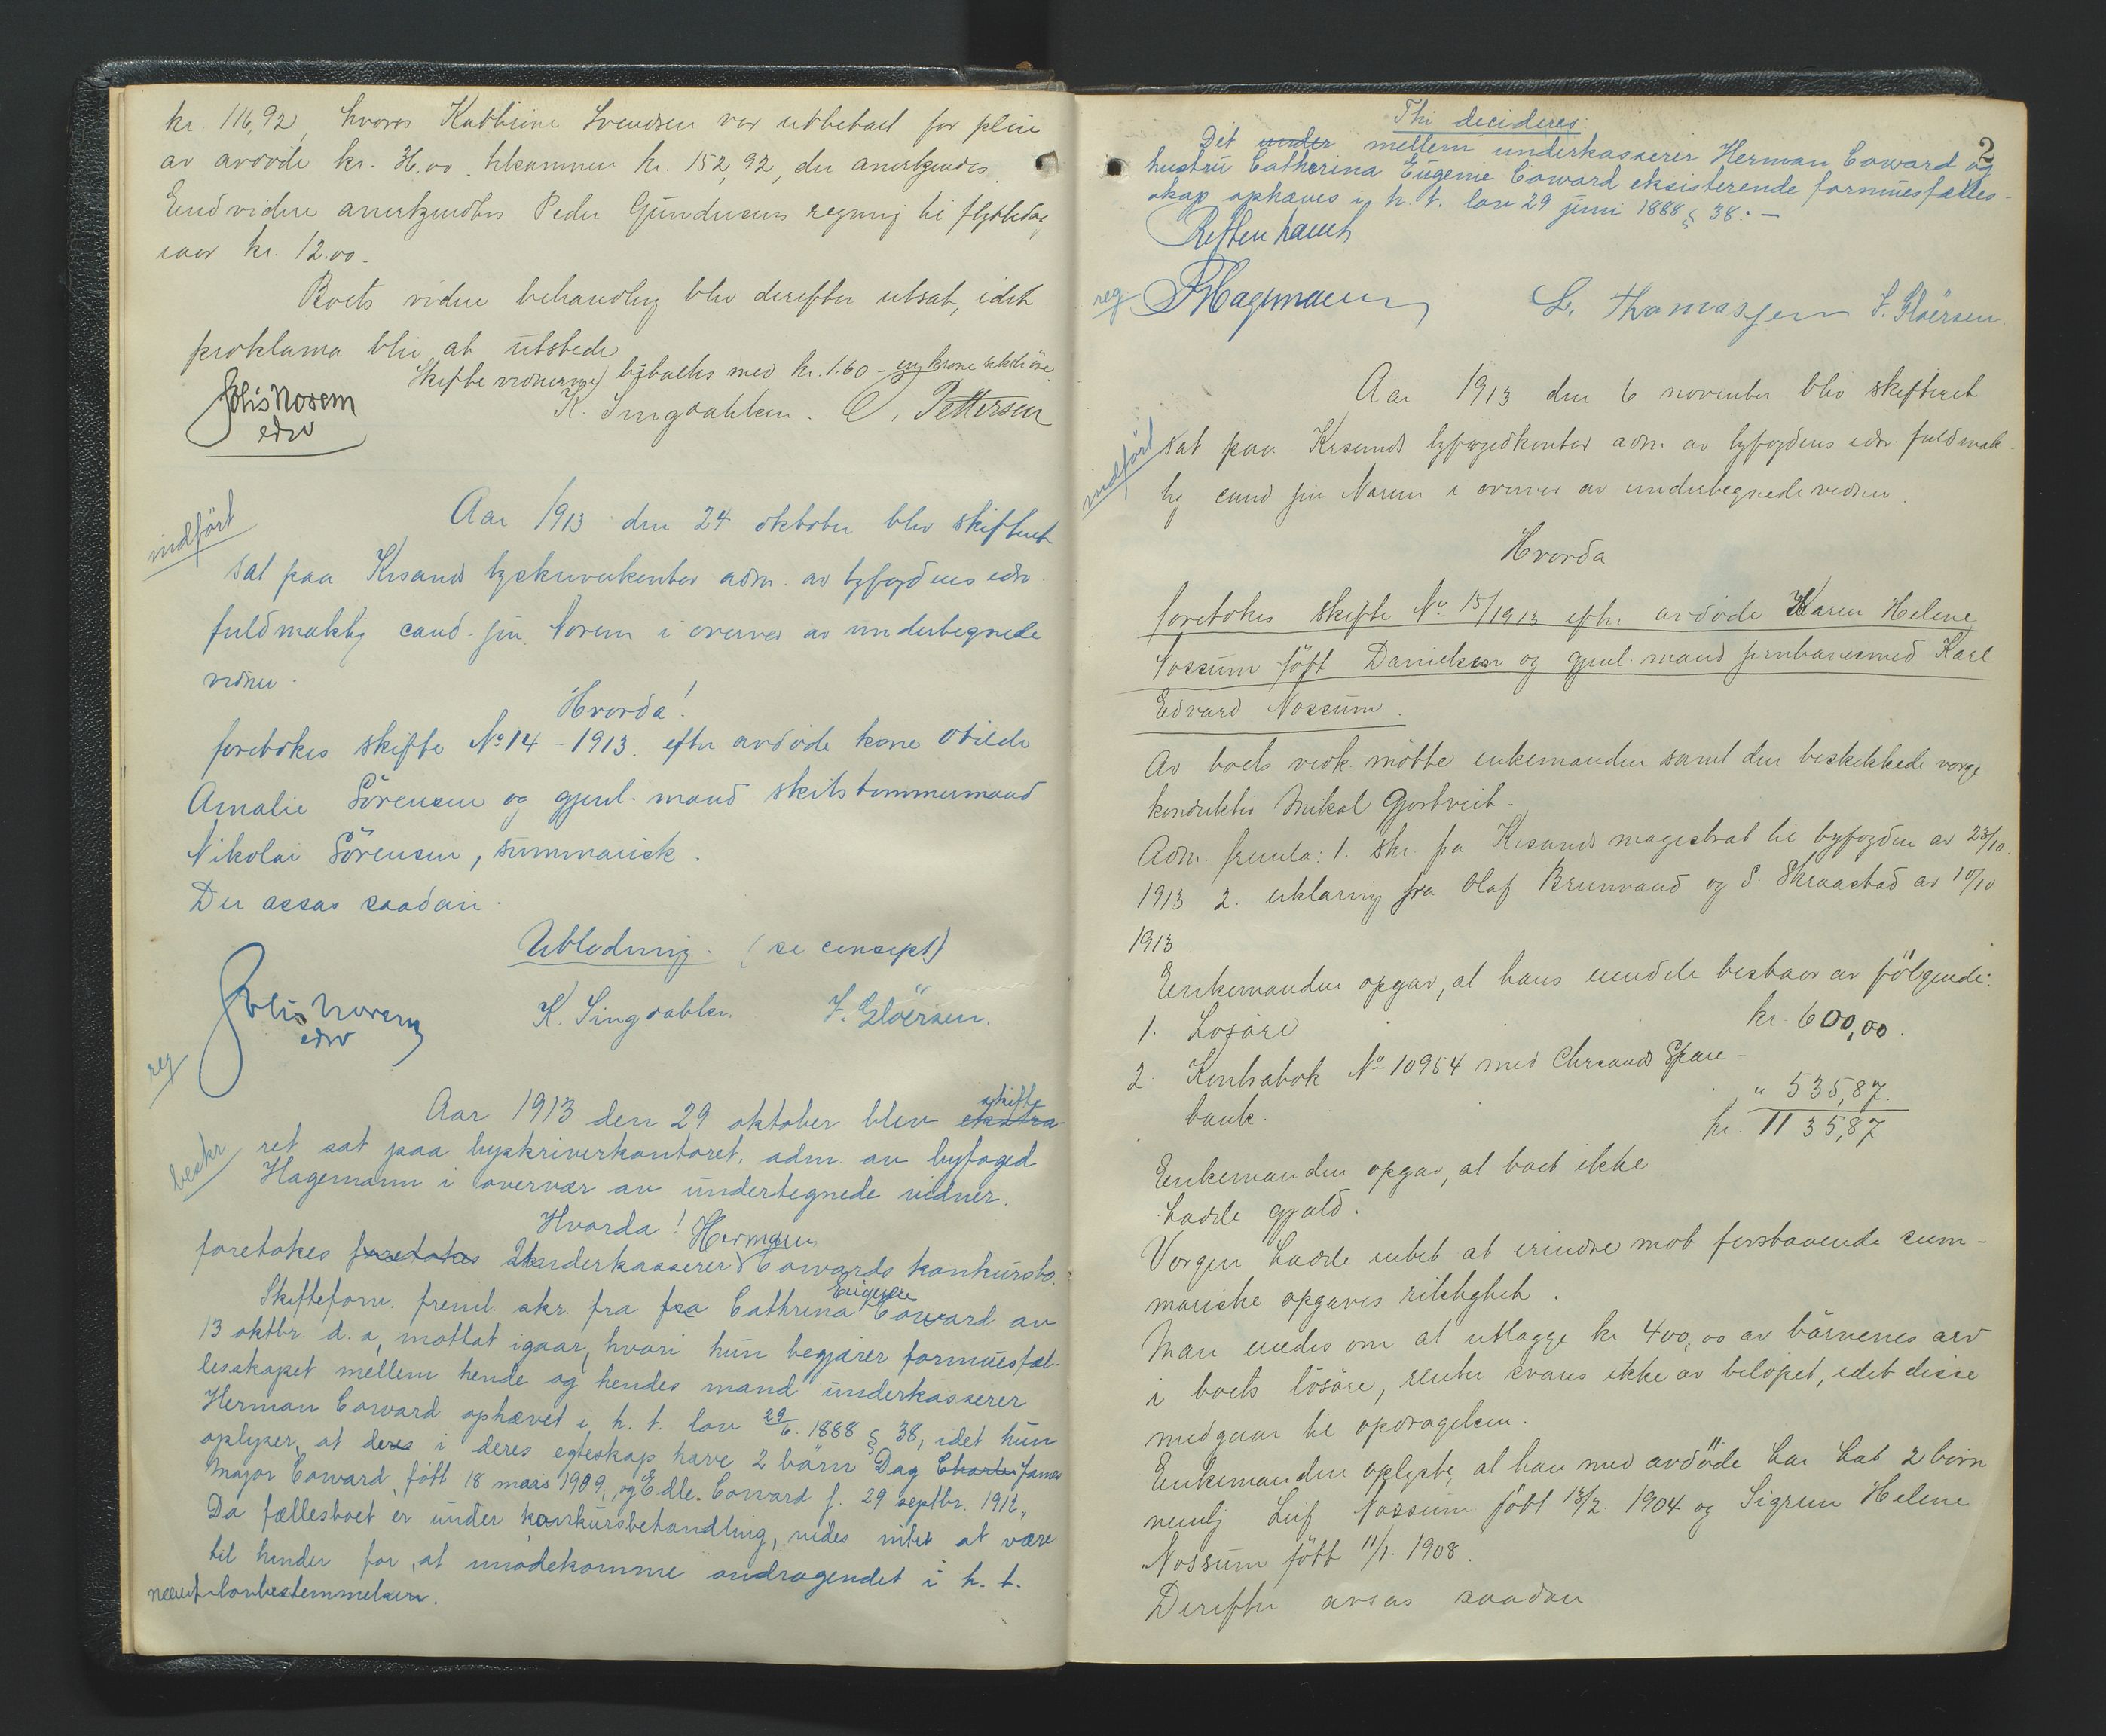 kr. 116,92, hvorav Kathrine Svendsen var utbetalt for pleie
av avdøde kr. 36.00 tilsammen kr. 152,92, der anerkjendes.
Endvidere anerkjendtes Peder Gundersens regning til
kr. 12.00.
Boets videre behandling blev derefter utsat, idet
proklama blir at utstede
Skiftevidnerne bibeholdes med kr. 1.60 - en krone seksti øre.
Johs Norem K. Singdahlsen. O. Pettersen
edsv
indført
Aar 1913 den 24 oktober blev skifteret
sat paa Krsands byskriverkontor adm. av byfogdens edsv.
fuldmæktig cand. jur. Norem i overvær av undertegnede
vidner.
Hvorda!
foretokes skifte No 14 - 1913. efter avdøde kone Otilde
Amalie Sörensen og gjenl. mand skibstømmermand
Nikolai Sörensen, summarisk.
Der assas saadan.
Utlodning. (se consept)
Johs Norem K. Singdahlsen. F. Glöersen.
edsv
reg
Aar 1913 den 29 oktober blev ekstra skifte
beskr. ret sat paa byskriverkontoret, adm. av byfoged
Hagemann i overvær av undertegnede vidner.
Hvorda!
foretokes foretokes Underkasserer Herman Cowards konkursbo.
Skifteforv. freml. skr. fra fra Cathrina Eugenie Coward av
13 oktbr. d. a, mottat igaar, hvori hun begjærer formuesfæl-
lesskapet mellem hende og hendes mand underkasserer
Herman Coward ophævet i h. t. lov 29/6. 1888 § 38, idet hun
oplyser, at deres i deres egteskap have 2 börn Dag Charles James
Major Coward, født 18 mars 1909, og Elle. Coward f. 29 septbr. 1912,
Da fællesboet er under konkursbehandling, vides intet at være
til hinder for, at imødekomme andragendet i h. t.
nævnt lovbestemmelsen.
2
Thi decideres:
Det under mellem underkasserer Herman Coward og
hustru Catherina Eugenie Coward eksisterende formuesfælles-
skap ophæves i h. t. lov 29 juni 1888 § 38. -
Retten hævet
reg Hagemann L. Thomassen F. Glöersen.
Aar 1913 den 6 november blev skifteret
indført
sat paa Krsands byfogedkontor adm. av byfogdens edsv. fuldmæk-
tig cand jur Norem i overvær av undertegnede vidner.
Hvorda
foretokes skifte No 15/1913 efter avdøde Karen Helene
Nossum född Danielsen og gjenl. mand jernbanesmed Karl
Edvard Nossum.
Av boets vedk. møtte enkemanden samt den beskikkede verge
konduktør Mikal Gjostveit.
Adm. fremla: 1. skr. fra Krsands magistrat til byfogden av 23/10.
1913 2. erklæring fra Olaf Brunvand og S. Skraastad av 10/10
1913
Enkemanden opgav, at hans eiendele bestaar av følgende:
1. Losøre kr. 600,00.
2. Kontrabok No 10954 med Chrsands Spare-
bank. " 535,87.
kr. 1135,87
Enkemanden opgav, at boet ikke
hadde gjæld.
Vergen hadde intet at erindre mot forstaaende sum-
mariske opgaves riktighet.
Man enedes om at utlægge kr 400,00 av börnenes arv
i boets lösøre, renter svares ikke av beløpet, idet disse
medgaar til opdragelsen.
Enkemanden oplyste, at han med avdöde har hat 2 börn
nemlig Leif Nossum født 13/2. 1904 og Sigrun Helene
Nossum född 11/1. 1908.
Derefter avsas saadan